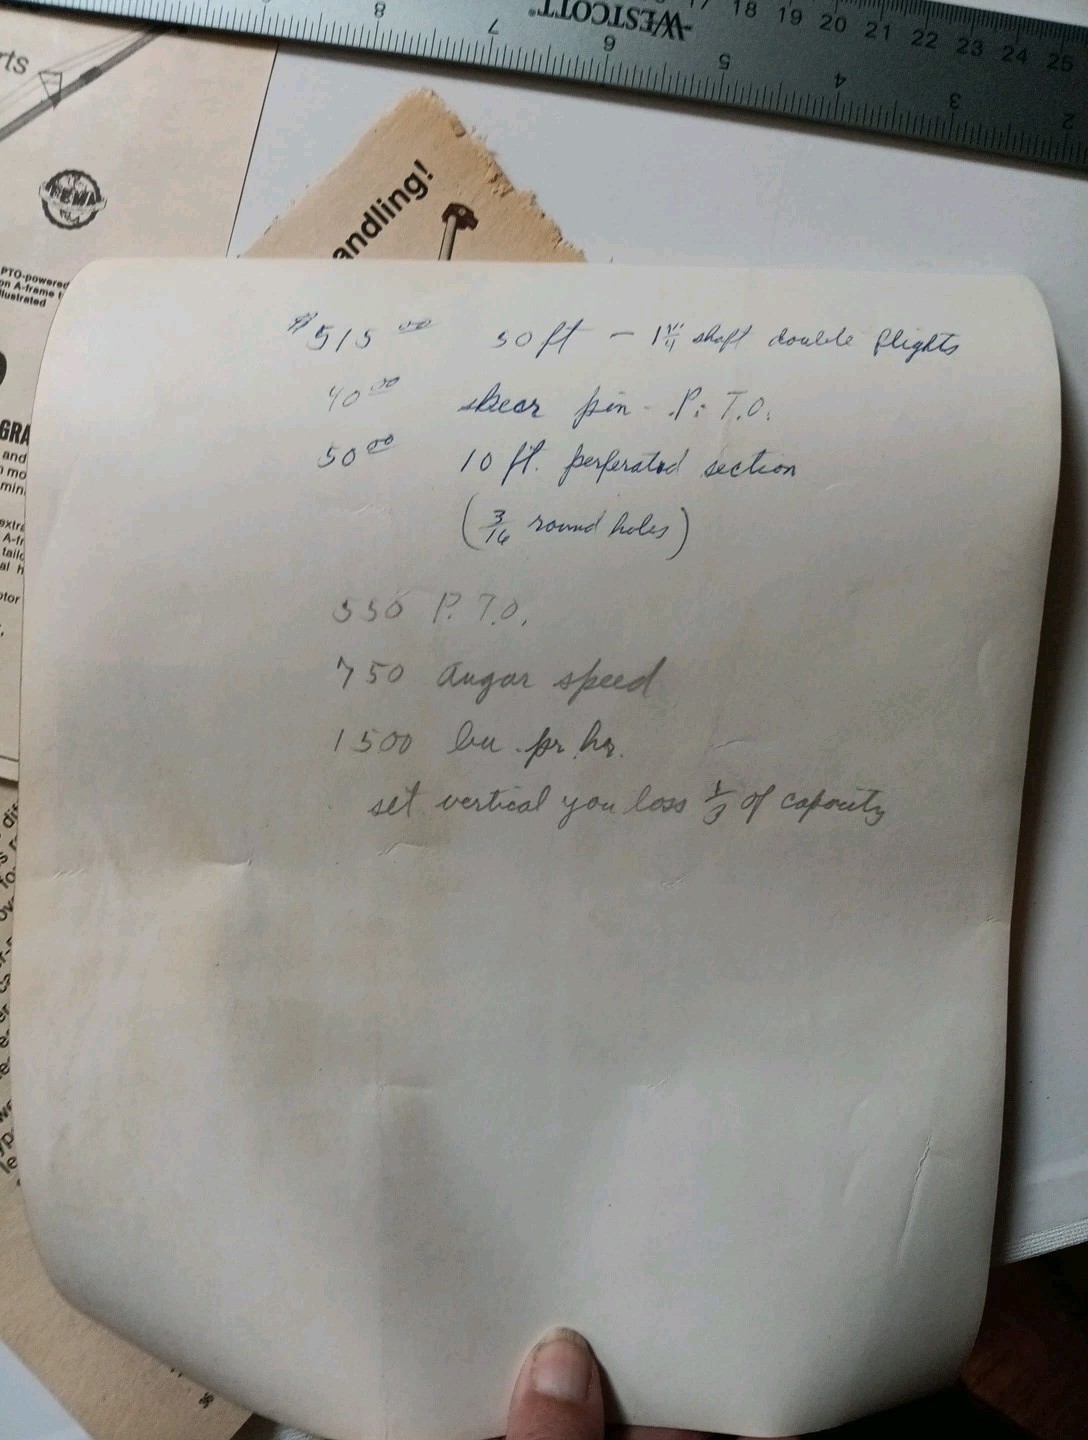 WESTCOTT®
8 7 6 5 4 3 2
17 18 19 20 21 22 23 24 25
rts
FEMA
PTO-powered
on A-frame
llustrated
andling!
GRA
and
mo
min
extra
A-fr
tailo
al h
otor
$515 00 50 ft - 1 1/4" shaft double flights
40 00 shear pin - P. T.O.
50 00 10 ft. perferated section
(3/16 round holes)
550 P. T.O.
750 augar speed
1500 bu. pr. hr.
set vertical you loss 1/3 of capacity
36